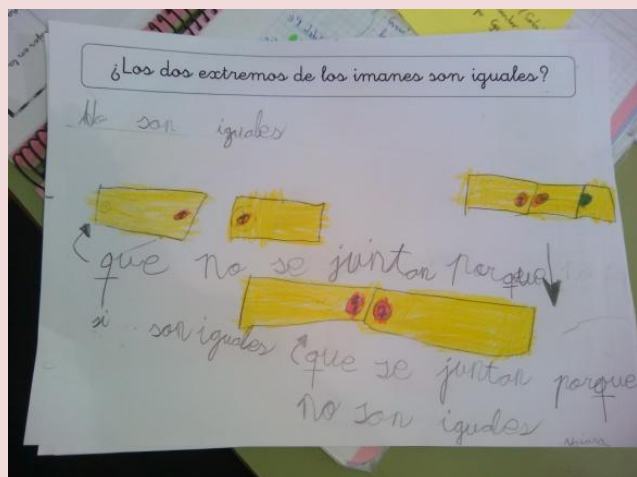 ¿Los dos extremos de los imanes son iguales?
No son iguales
que no se juntan porque
si son iguales
que se juntan porque
no son iguales